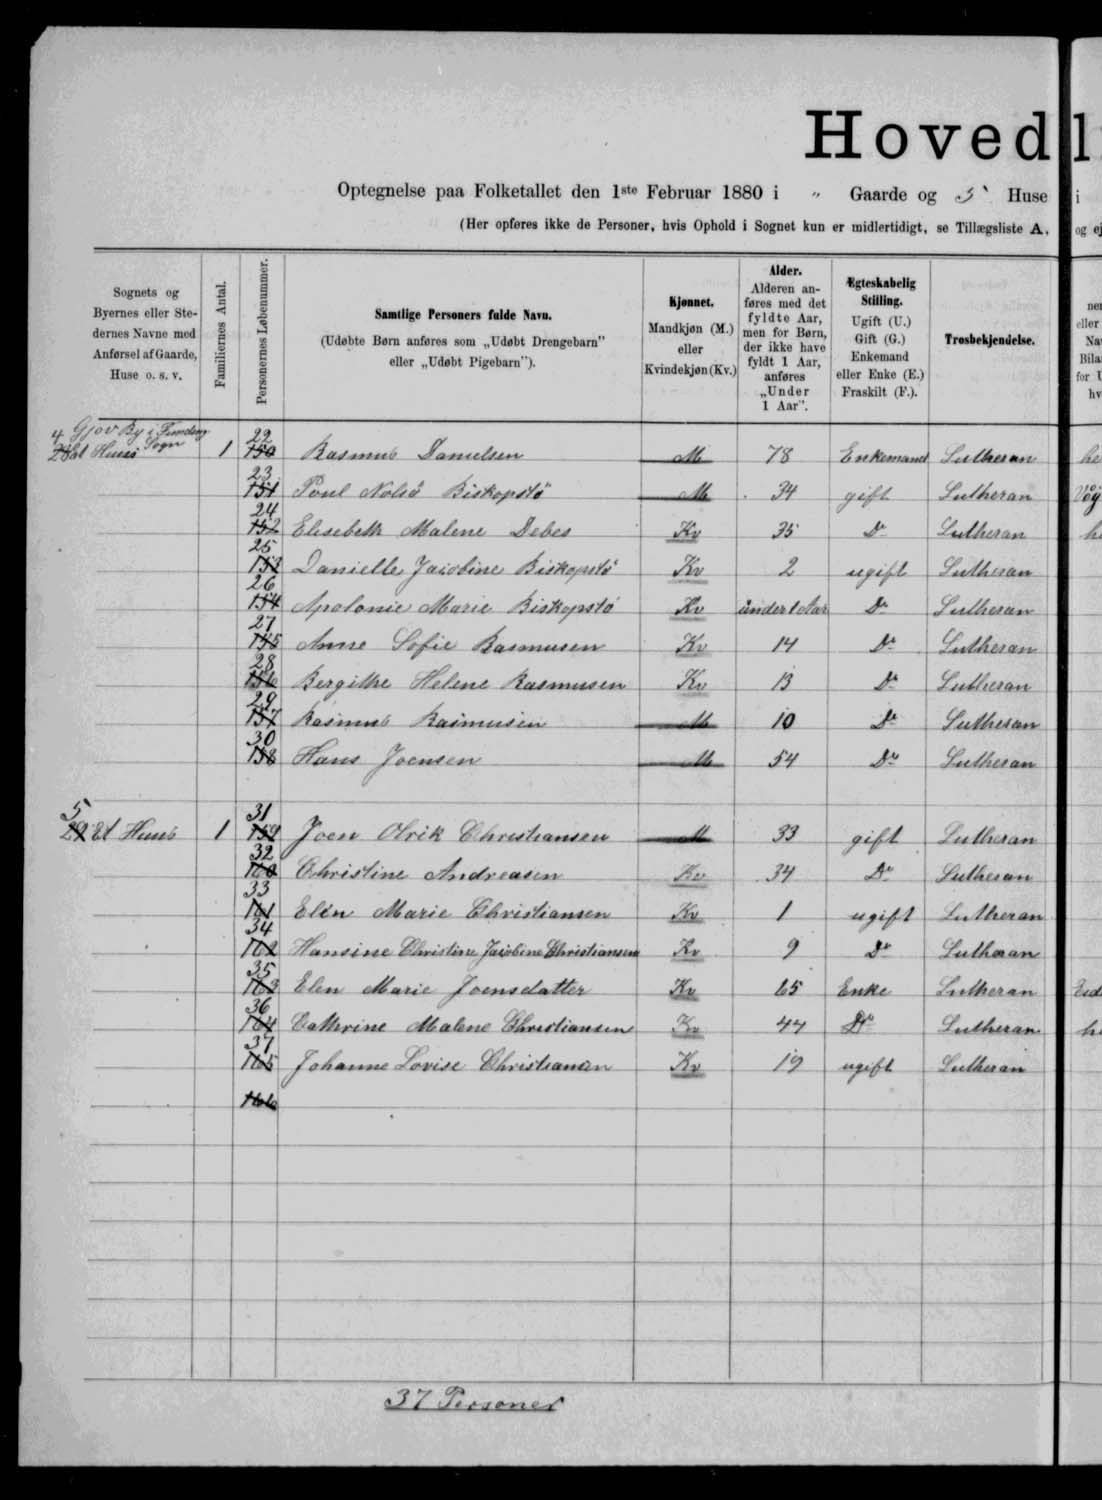 Hovedl
Optegnelse paa Folketallet den 1ste Februar 1880 i „ Gaarde og 5 Huse i
(Her opføres ikke de Personer, hvis Ophold i Sognet kun er midlertidigt, se Tillægsliste A, og ej
Sognets og Byernes eller Stedernes Navne med Anførsel af Gaarde, Huse o. s. v.
Familiernes Antal.
Personernes Løbenummer.
Samtlige Personers fulde Navn.
(Udøbte Børn anføres som „Udøbt Drengebarn" eller „Udøbt Pigebarn").
Kjønnet.
Mandkjøn (M.) eller Kvindekjøn (Kv.)
Alder.
Alderen anføres med det fyldte Aar, men for Børn, der ikke have fyldt 1 Aar, anføres „Under 1 Aar".
Ægteskabelig Stilling.
Ugift (U.) Gift (G.) Enkemand eller Enke (E.) Fraskilt (F.).
Trosbekjendelse.
Gjov By i Funding Sogn
4 28 Et Huus 1 22 150 Rasmus Danielsen M 78 Enkemand Lutheran he
23 151 Poul Nolsø Biskopstø M 34 gift Lutheran
24 152 Elisebeth Malene Debes Kv 35 Do Lutheran he
25 153 Danielle Jacobine Biskopstø Kv 2 ugift Lutheran
26 154 Apolonie Marie Biskopstø Kv under 1 Aar Do Lutheran
27 155 Anne Sofie Rasmusen Kv 14 Do Lutheran
28 156 Bergithe Helene Rasmusen Kv 13 Do Lutheran
29 157 Rasmus Rasmusen M 10 Do Lutheran
30 158 Hans Joensen M 54 Do Lutheran
5 29 Et Huus 1 31 159 Joen Olrik Christiansen M 33 gift Lutheran
32 160 Christine Andreasen Kv 34 Do Lutheran
33 161 Elin Marie Christiansen Kv 1 ugift Lutheran
34 162 Hansine Christine Jacobine Christiansen Kv 9 Do Lutheran
35 163 Elen Marie Joensdatter Kv 65 Enke Lutheran
36 164 Cathrine Malene Christiansen Kv 44 Do Lutheran he
37 165 Johanne Lovise Christiansen Kv 19 ugift Lutheran
166
37 Personer